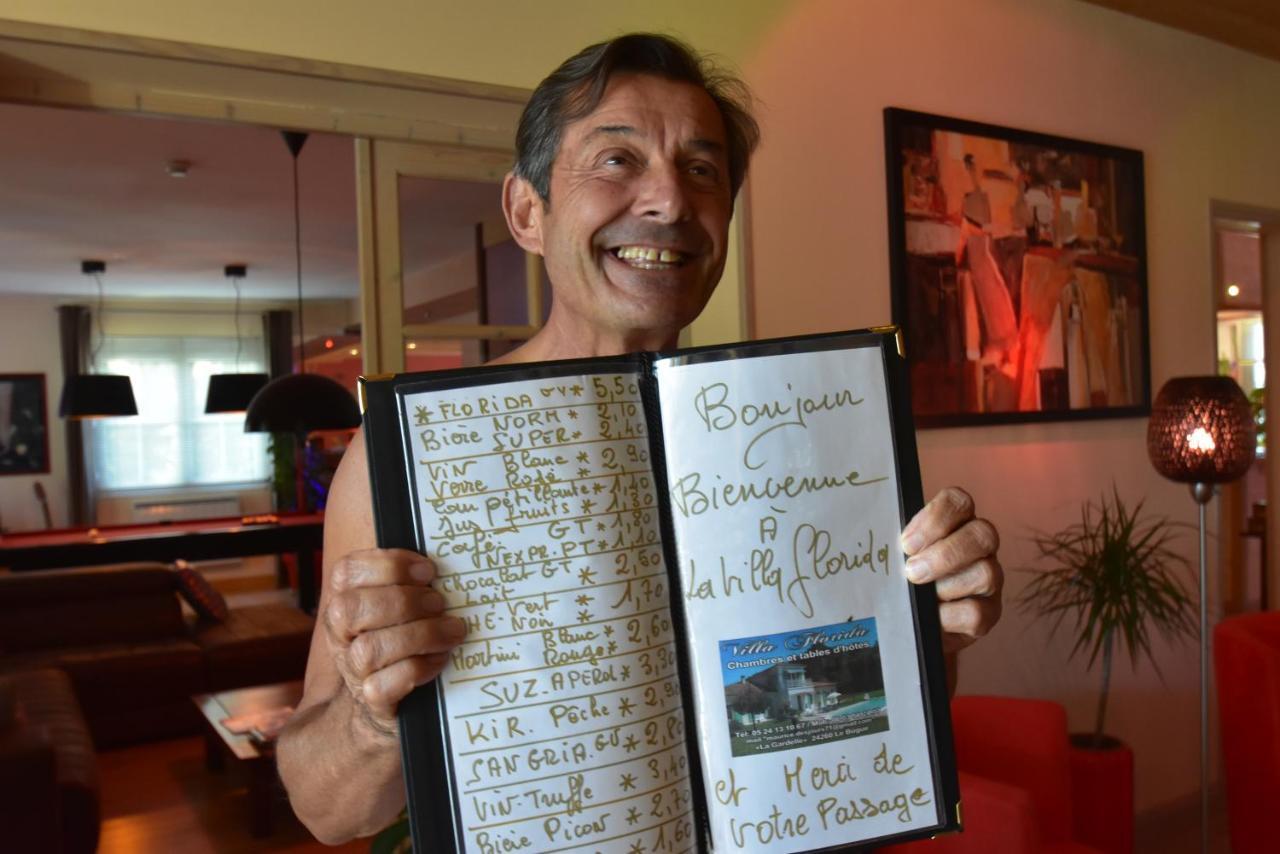 * FLORIDA GV * 5,50
Bière NORM * 2,10
SUPER * 2,40
Vin Blanc * 2,90
Verre Rosé *
pétillante * 1,40
Jus fruits * 1,80
Café GT * 1,80
EXPR. PT * 1,10
Chocolat GT * 2,50
Lait
THÉ Vert * 1,70
Noir
Martini Blanc * 2,60
Rouge *
SUZ. APEROL * 3,30
KIR. Pêche * 2,90
SANGRIA. GV * 2,80
VIN-Truffe * 3,40
Bière Picon * 2,70
* 1,60
Bonjour
Bienvenue
À
La Villa Florida
Villa Florida
Chambres et tables d'hôtes
Tél: 05 24 13 10 67 /
«La Gardelle» 24260 Le Bugue
et Merci de
Votre Passage